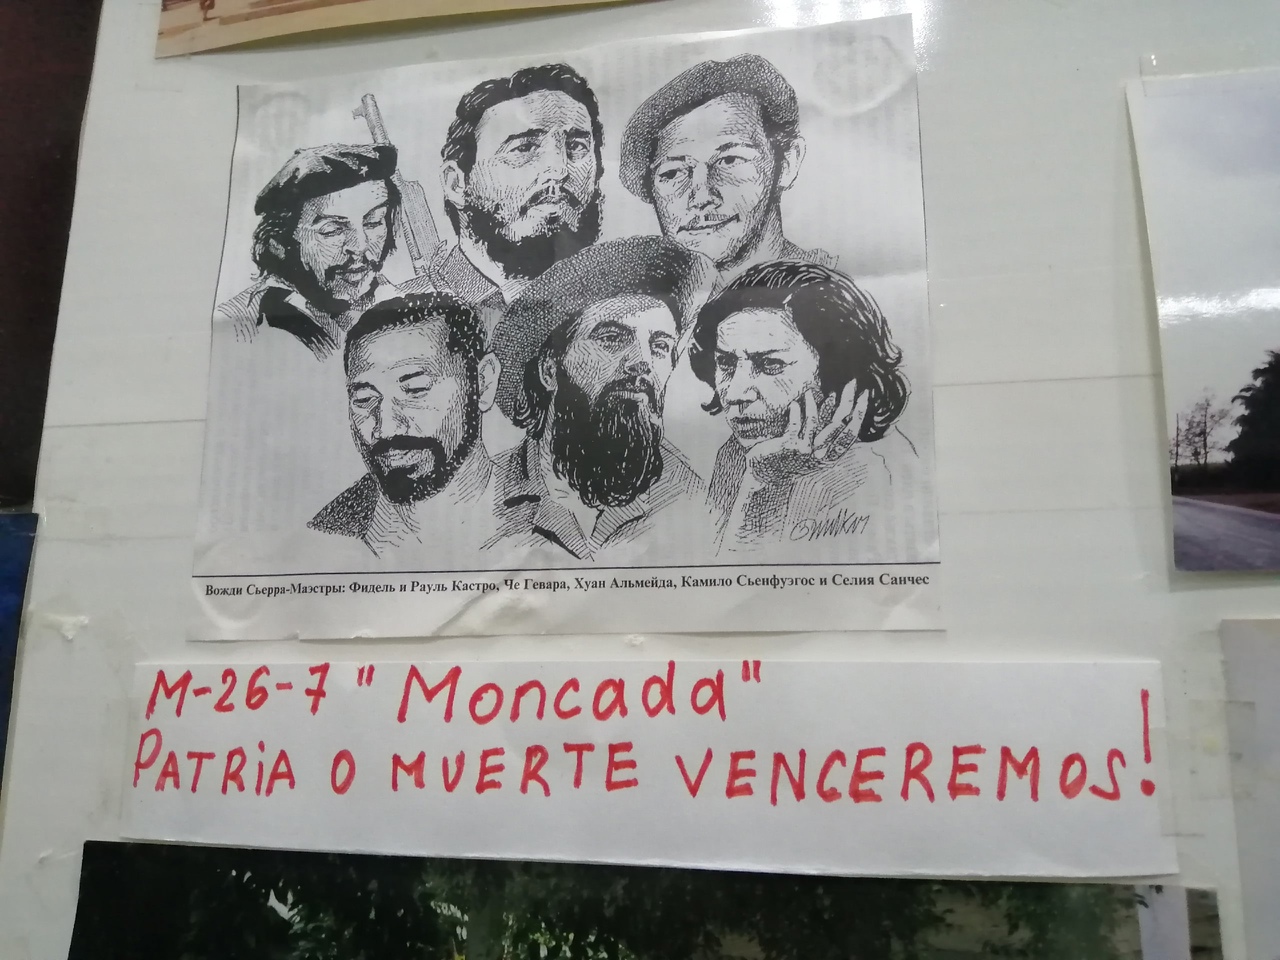 Вожди Сьерра-Маэстры: Фидель и Рауль Кастро, Че Гевара, Хуан Альмейда, Камило Сьенфуэгос и Селия Санчес
M-26-7 "Moncada"
PATRiA O MUERTE VENCEREMOS!